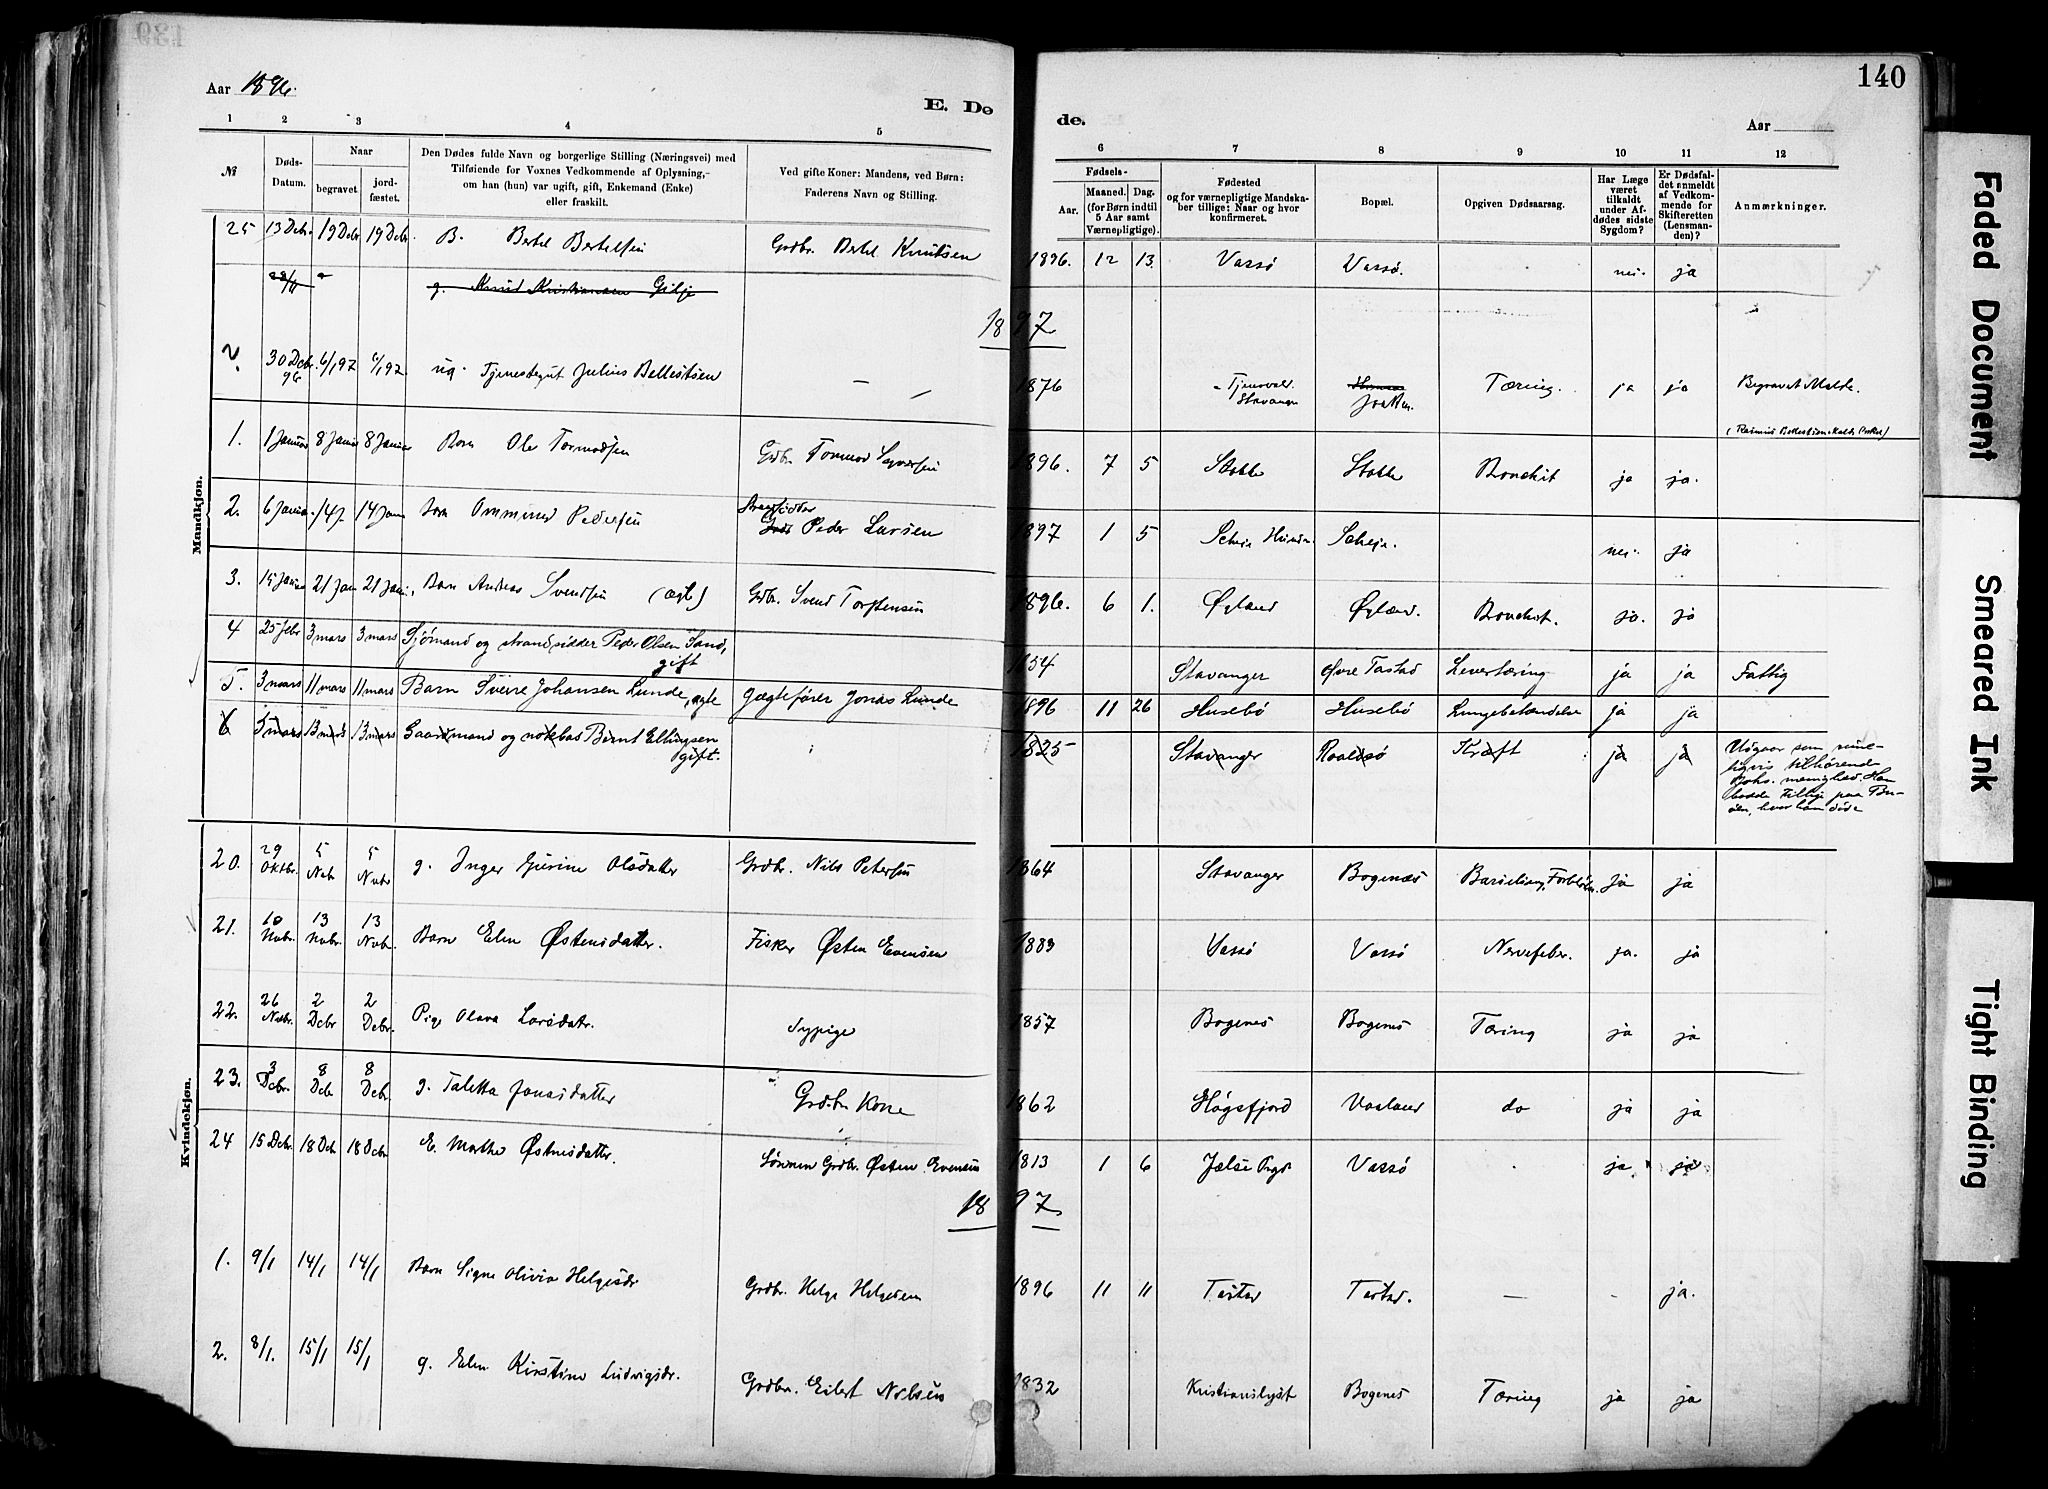 139
140
Aar 1896.
E. De
de.
Aar
1 2 3 4 5
6 7 8 9 10 11 12
№
Døds-
Datum.
Naar
begravet.
jord-
fæstet.
Den Dødes fulde Navn og borgerlige Stilling (Næringsvei) med
Tilføiende for Voxnes Vedkommende af Oplysning,-
om han (hun) var ugift, gift, Enkemand (Enke)
eller fraskilt.
Ved gifte Koner: Mandens, ved Børn:
Faderens Navn og Stilling.
Fødsels-
Aar.
Maaned. Dag.
(for Børn indtil
5 Aar samt
Værnepligtige).
Fødested
og for værnepligtige Mandska-
ber tillige: Naar og hvor
konfirmeret.
Bopæl.
Opgiven Dødsaarsag.
Har Læge
været
tilkaldt
under Af-
dødes sidste
Sygdom?
Er Dødsfal-
det anmeldt
af Vedkom-
mende for
Skifteretten
(Lensman-
den)?
Anmærkninger.
Mandkjøn.
25 13 Debr. 19 Debr 19 Debr. B. Bertel Bertelsen Grdbr. Bertel Knutsen 1896. 12 13. Vassø Vassø. nei. ja
28/11 g. Knud Kristiansen Gilje
1897
2. 30 Dcbr. 96 6/1 97 6/1 97. ug. Tjenestegut Julius Bellestsen — 1876 Stavanger Tæring. ja ja Begravet Malde.
1. 1 Januar 8 Januar 8 Januar Barn Ole Tormodsen Grdbr. Tormod 1896. 7 5 Stokke Stokke Bronchit ja ja.
2. 6 Januar 14 J. 14 Jan Barn Ommund Pedersen Strandsidder Peder Larsen 1897 1 5 Scheie Scheie. nei. ja
3. 15 Januar 21 Jan 21 Jan. Barn Andreas Svendsen (ægte) Grdbr. Svend Torstensen 1896. 6 1. Øyland Øyland. Bronchit. ja. ja
4 25 febr 3 mars 3 mars Sjømand og strandsidder Peder Olsen Sand, gift 1854 Stavanger Øvre Tastad Levertæring ja ja Fattig
5. 3 mars 11 mars 11 mars Barn Sverre Johansen Lunde, ægte Gjægtefører Jonas Lunde 1896 11 26 Husebø Husebø Lungebetændelse ja ja
6 5 mars 13 mars 13 mars Gaardmand og notebas Bernt Ellingsen gift. 1825 Stavanger Roaldsø Kræft ja ja Udgaar som rime-
ligvis tilhørende
Johs. menighed. Han
havde tillige paa Bu-
øen, hvor han døde
Kvindekjøn.
20. 29 Oktbr. 5 Nvbr 5 Nvbr g. Inger Gurine Olsdatter Grdbr. Nils Petersen 1864 Stavanger Bogenæs Barselseng, ja ja
21. 10 Nvbr. 13 Nvbr. 13 Nvbr. Barn Elen Østensdatter. Fisker Østen Evensen 1883 Vassø Vassø Nervefeber. ja. ja
22. 26 Nvbr. 2 Dcbr 2 Dcbr. Pige Olava Larsdatr. Sypige 1857 Bogenes Bogenes Tæring ja ja
23. 3 Dcbr. 8 Dcbr 8 Dcbr g. Taletta Jonasdatter Grdbr. Kone 1862 Høgsfjord Vaaland do ja ja
24 15 Dcbr. 18 Dcb 18 Dcbr E. Marthe Østensdatter. Sønnen Grdbr. Østen Evensen 1813 1 6 Jelse Prgd Vassø ja. ja
1897
1. 9/1 14/1 14/1 Barn Signe Olivia Helgesdr Grdbr. Helge Helgesen 1896 11 11 Tastad Tastad. — - ja.
2. 8/1. 15/1 15/1 g. Elen Kirstine Ludvigsdr. Grdbr. Eilert Nilsen 1832 Kristianslyst Bogenes Tæring ja ja
Faded Document
Smeared Ink
Tight Binding